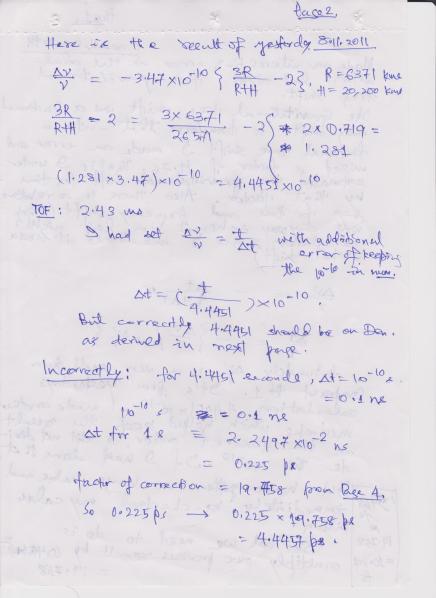 Page 2,
Here is the result of yesterday 8.11.2011
Δν/ν = -3.47×10⁻¹⁰ { 3R/(R+H) - 2 }, R = 6371 kms
H = 20,200 kms
3R/(R+H) - 2 = 3×6371/26571 - 2 } * 2 × 0.719 =
* 1.281
(1.281 × 3.47)×10⁻¹⁰ = 4.4451×10⁻¹⁰
TOF: 2.43 ms
I had set Δν/ν = t/Δt with additional
error of keeping
the 10⁻¹⁰ in num.
Δt = (t/4.4451) × 10⁻¹⁰.
But correctly 4.4451 should be on Den.
as derived in next page.
Incorrectly: for 4.4451 seconds, Δt = 10⁻¹⁰ s
= 0.1 ns
10⁻¹⁰ s = 0.1 ns
Δt for 1 s = 2.2497 ×10⁻² ns
= 0.225 ps
factor of correction = 19.758 from Page 4.
So 0.225 ps → 0.225 × 19.758 ps
= 4.4457 ps.